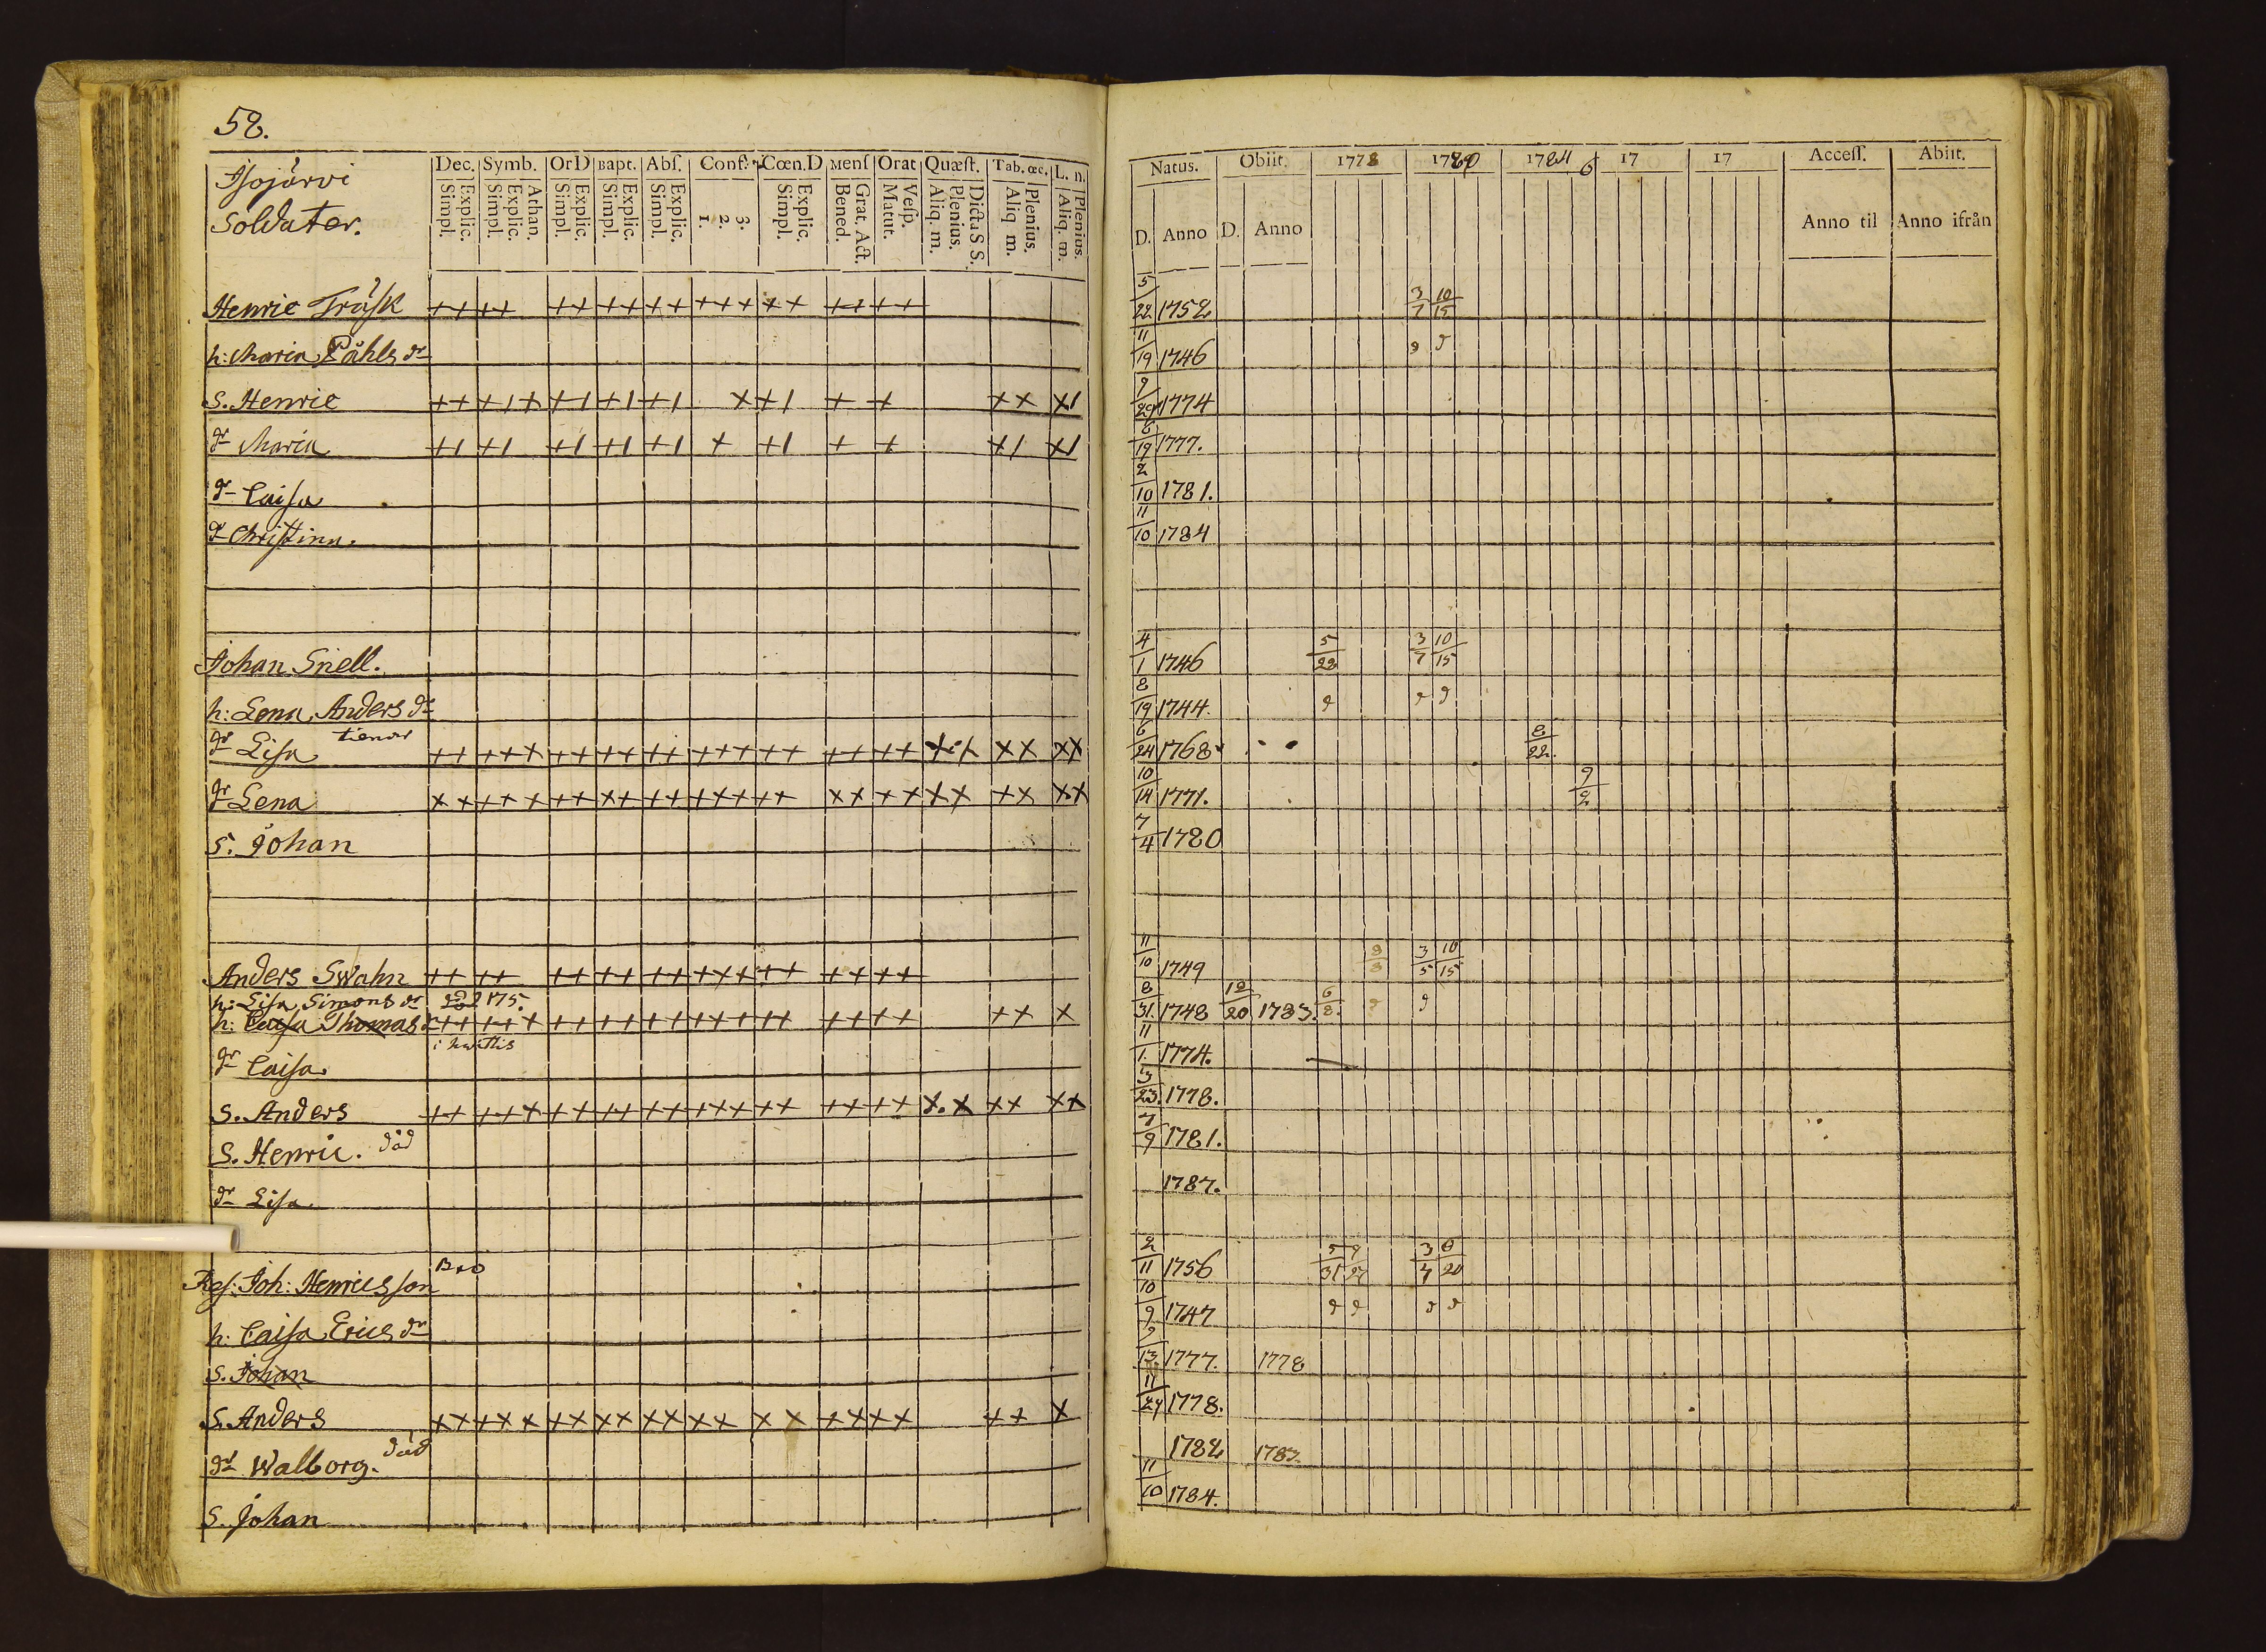 58.
Isojärvi
Soldater.
Dec. Symb. Or D Bapt. Abſ. Conf. Cœn. D Menſ Orat Quæſt. Tab. œc. L. n.
Explic. Simpl. Athan. Explic. Simpl. Explic. Simpl. Explic. Simpl. Explic. Simpl. 3. 2. 1. Explic. Simpl. Grat. Act. Bened. Veſp. Matut. Dicta S S. Plenius. Aliq. m. Plenius. Aliq m. Plenius. Aliq. m.
Natus. Obiit. 1778 1780 1784 6 17 17 Acceſſ. Abiit.
D. Anno D. Anno Anno til Anno ifrån
Henric Träsk ++ ++ ++ ++ ++ +++ ++ ++ ++ 5/22 1752 3/7 10/15
h: Maria Påhls dr 11/19 1746
S. Henric ++ +1+ +1 +1 +1 + +1 + + ++ +1 9/29 1774
dr Maria +1 +1 +1 +1 +1 + +1 + + +1 +1 6/19 1777.
dr Caisa 2/10 1781.
dr Christina. 11/10 1784
Johan Snell. 4/1 1746 5/22 3/7 10/15
h: Lena Anders dr 8/19 1744.
dr Lisa tienar ++ +++ ++ ++ ++ +++ ++ ++ ++ ++ ++ ++ 6/24 1768 8/22.
dr Lena ++ +++ ++ ++ ++ +++ ++ ++ ++ ++ ++ ++ 10/14 1771. 9/2
S. Johan 7/4 1780
Anders Swahn ++ ++ ++ ++ ++ +++ ++ ++ ++ 11/10 1749 8/8 3/5 10/15
h: Lisa Simons dr död 175.
h: Caisa Thomas dr ++ +++ ++ ++ ++ +++ ++ ++ ++ ++ + 8/31 1748 12/20 1783. 6/8.
i kwittis
dr Caisa. 11/1. 1774.
S. Anders ++ +++ ++ ++ ++ +++ ++ ++ ++ +.+ ++ ++ 3/23. 1778.
S. Henric. död 7/9 1781.
dr Lisa. 1787.
Res: Joh: Henricsson 2/11 1756 5/31 9/27 3/7 8/20
h: Caisa Erics dr 10/9 1747
S. Johan 9/13. 1777. 1778
S. Anders ++ +++ ++ ++ ++ ++ ++ ++ ++ ++ + 11/29 1778.
dr Walborg. död 1782 1783.
S. Johan 11/10 1784.